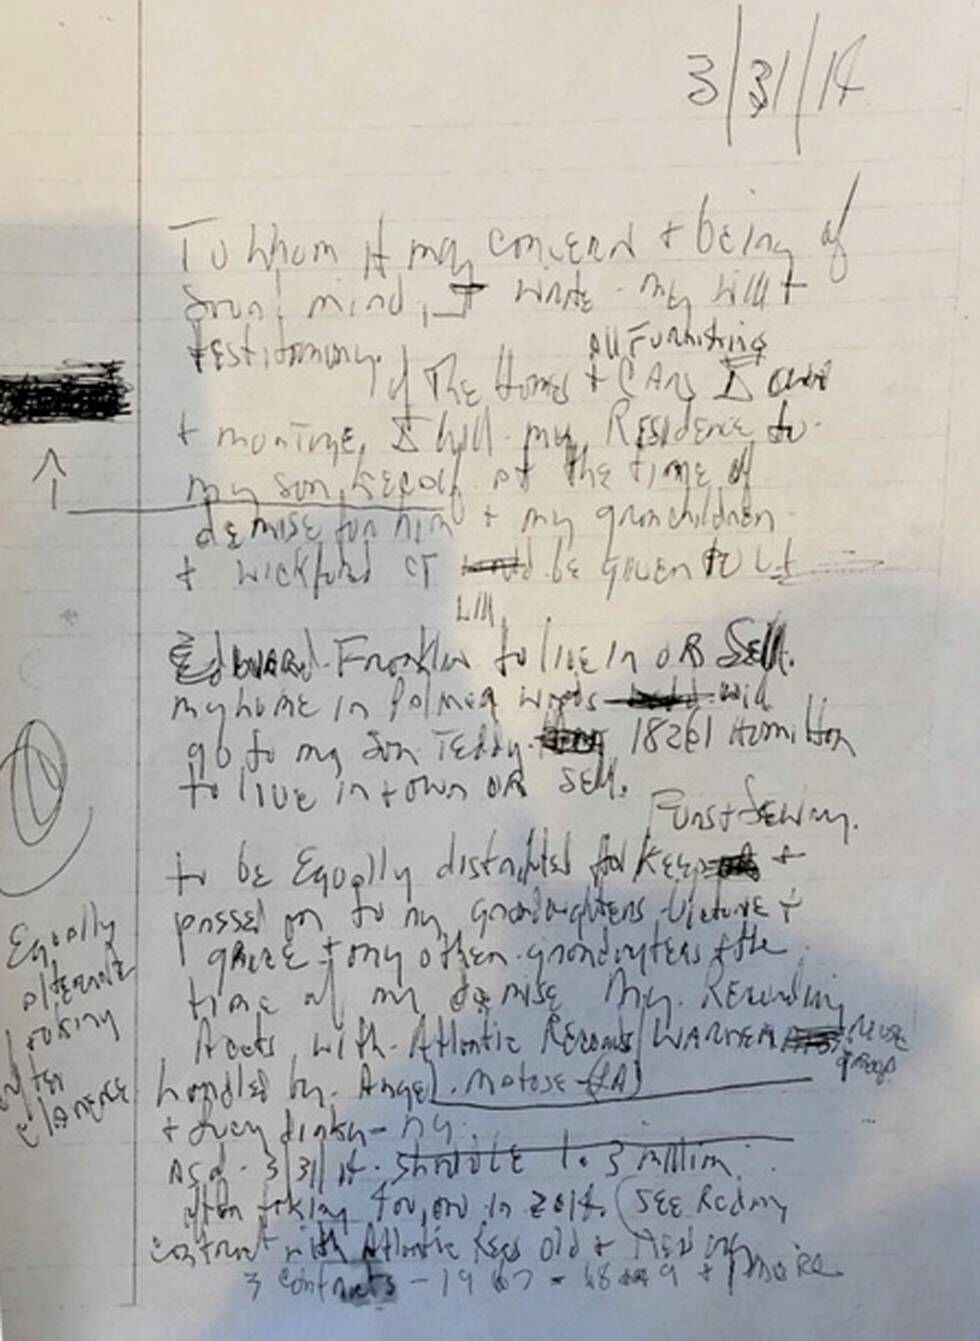 3/31/14
To Whom it may concern & being of
sound mind, I write my will &
testimony.
All Furnitring
of The Homes & CARs I own
& mortgage, I will my Residence to
my son Kecalf at the time of
demise for him & my granchildren
& Wickford CT be given to
will
Edward Franklin to live in OR Sell.
my home in Palmer Woods will
go to my son Teddy 18261 Hamilton
to live in town OR Sell.
Furs & Jewlry.
to be Equally distributed for keeps &
passed on to my grandaughters Victorie &
grace & my other grandauters & the
time of my demise My Recording
Accts with Atlantic Records/WARNER Music
group
handled by Angel Matose (LA)
& NY.
As of 3/31/14 should be 1.3 million
after taking 400,000 in 2014. (SEE Recding
contract with Atlantic Recs old & NEW
3 contracts - 1967 - 68 & more
Equally
alternate
looking
after
Clarence